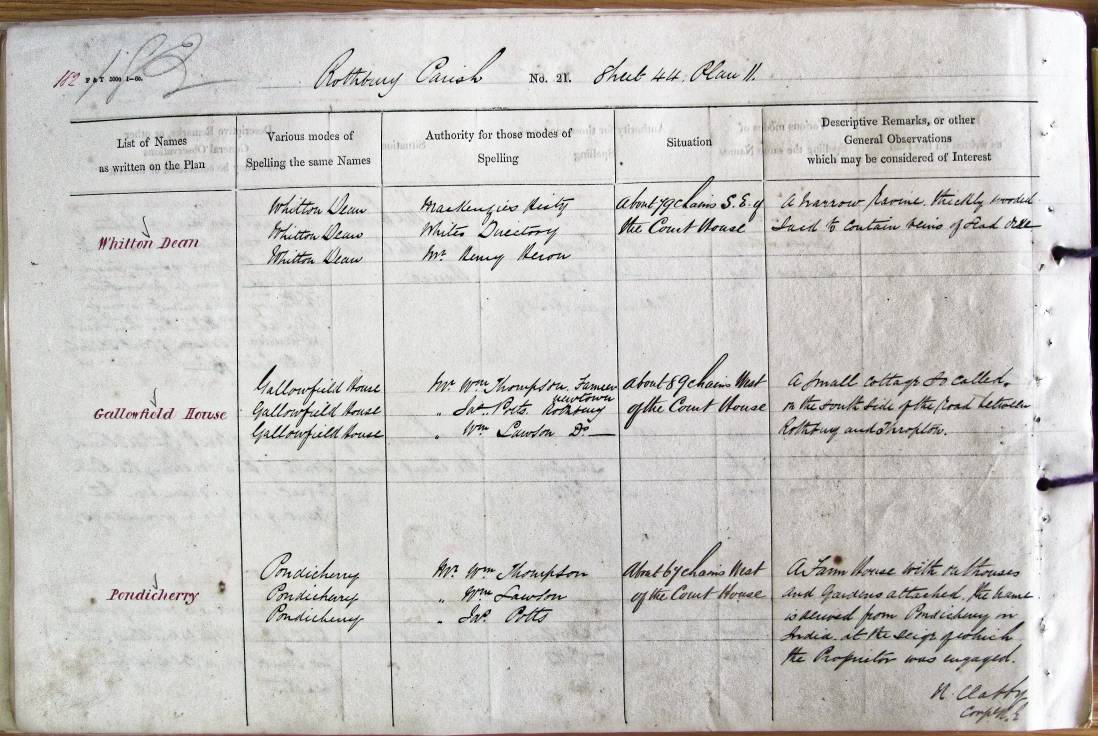 162 F & T 5000 4—60. 162
Rothbury Parish No. 21. Sheet 44. Plan 11.
List of Names
as written on the Plan
Various modes of
Spelling the same Names
Authority for those modes of
Spelling
Situation
Descriptive Remarks, or other
General Observations
which may be considered of Interest
Whitton Dean
Whitton Dean
Whitton Dean
Whitton Dean
MacKenzies Histy
Whites Directory
Mr. Henry Heron
About 79 chains S.E. of
the Court House
A narrow ravine, thickly wooded
Said to contain veins of Lead
Gallowfield House
Gallowfield House
Gallowfield House
Gallowfield House
Mr. Wm Thompson. Farmer
newtown
„ Jas. Potts. Rothbury
„ Wm Lawson Do. —
About 89 chains West
of the Court House
A small cottage so called.
on the south side of the road between
Rothbury and Thropton.
Pondicherry
Pondicherry
Pondicherry
Pondicherry
Mr. Wm Thompson
„ Wm Lawson
„ Jas. Potts
About 67 chains West
of the Court House
A Farm House with outhouses
and Gardens attached, the name
is derived from Pondicherry in
India. at the seige of which
the Proprietor was engaged.
N. Clabby
Corpl R.E